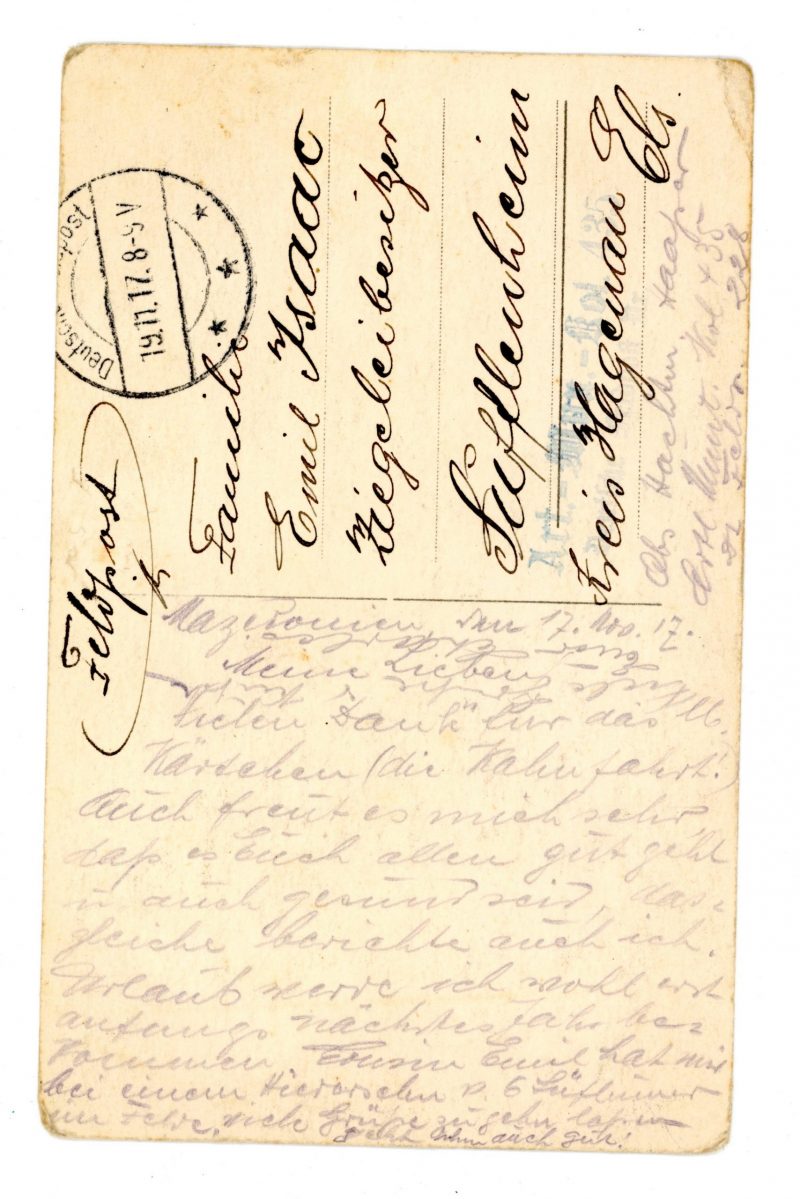 Feldpost
Deutsche Feldpost
19.11.17. 8-9 V
Familie
Emil Isaac
Ziegeleibesitzer
Sufflenheim
Kreis Hagenau Els.
Art.-Mun.-Kol. 435
Abs
Art Munt. Kol 435
Dt Feldp. 228
Mazedonien, den 17. Nov. 17.
Meine Lieben
Vielen Dank für das lb.
Kärtchen (die Kahnfahrt!)
Auch freut es mich sehr,
daß es Euch allen gut geht
u auch gesund seid, das-
gleiche berichte auch ich.
Urlaub werde ich wohl erst
anfangs nächstes Jahr be-
kommen Cousin Emil hat mir
bei einem
im Felde, viele Grüße zu gehn laßen
Geht ihm auch gut!